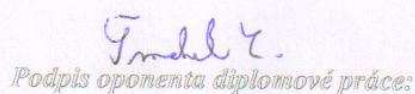 Podpis oponenta diplomové práce: